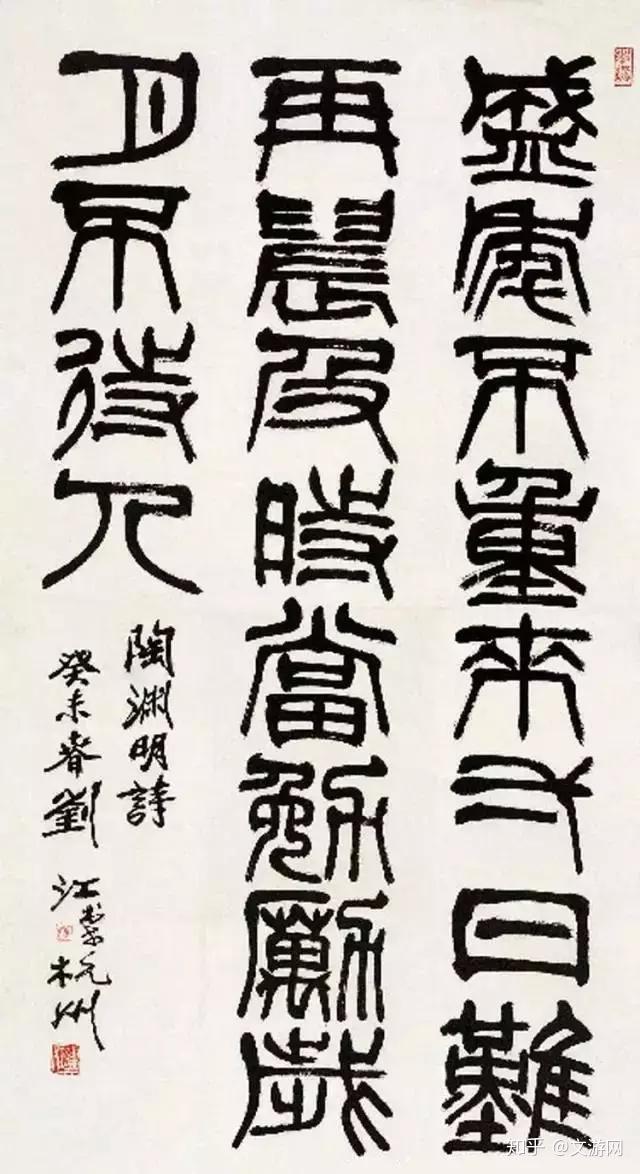 盛年不重來弌日難
再晨及時當勉勵歲
月不待人
陶淵明詩
癸未春劉江杭州
知乎 @文游网